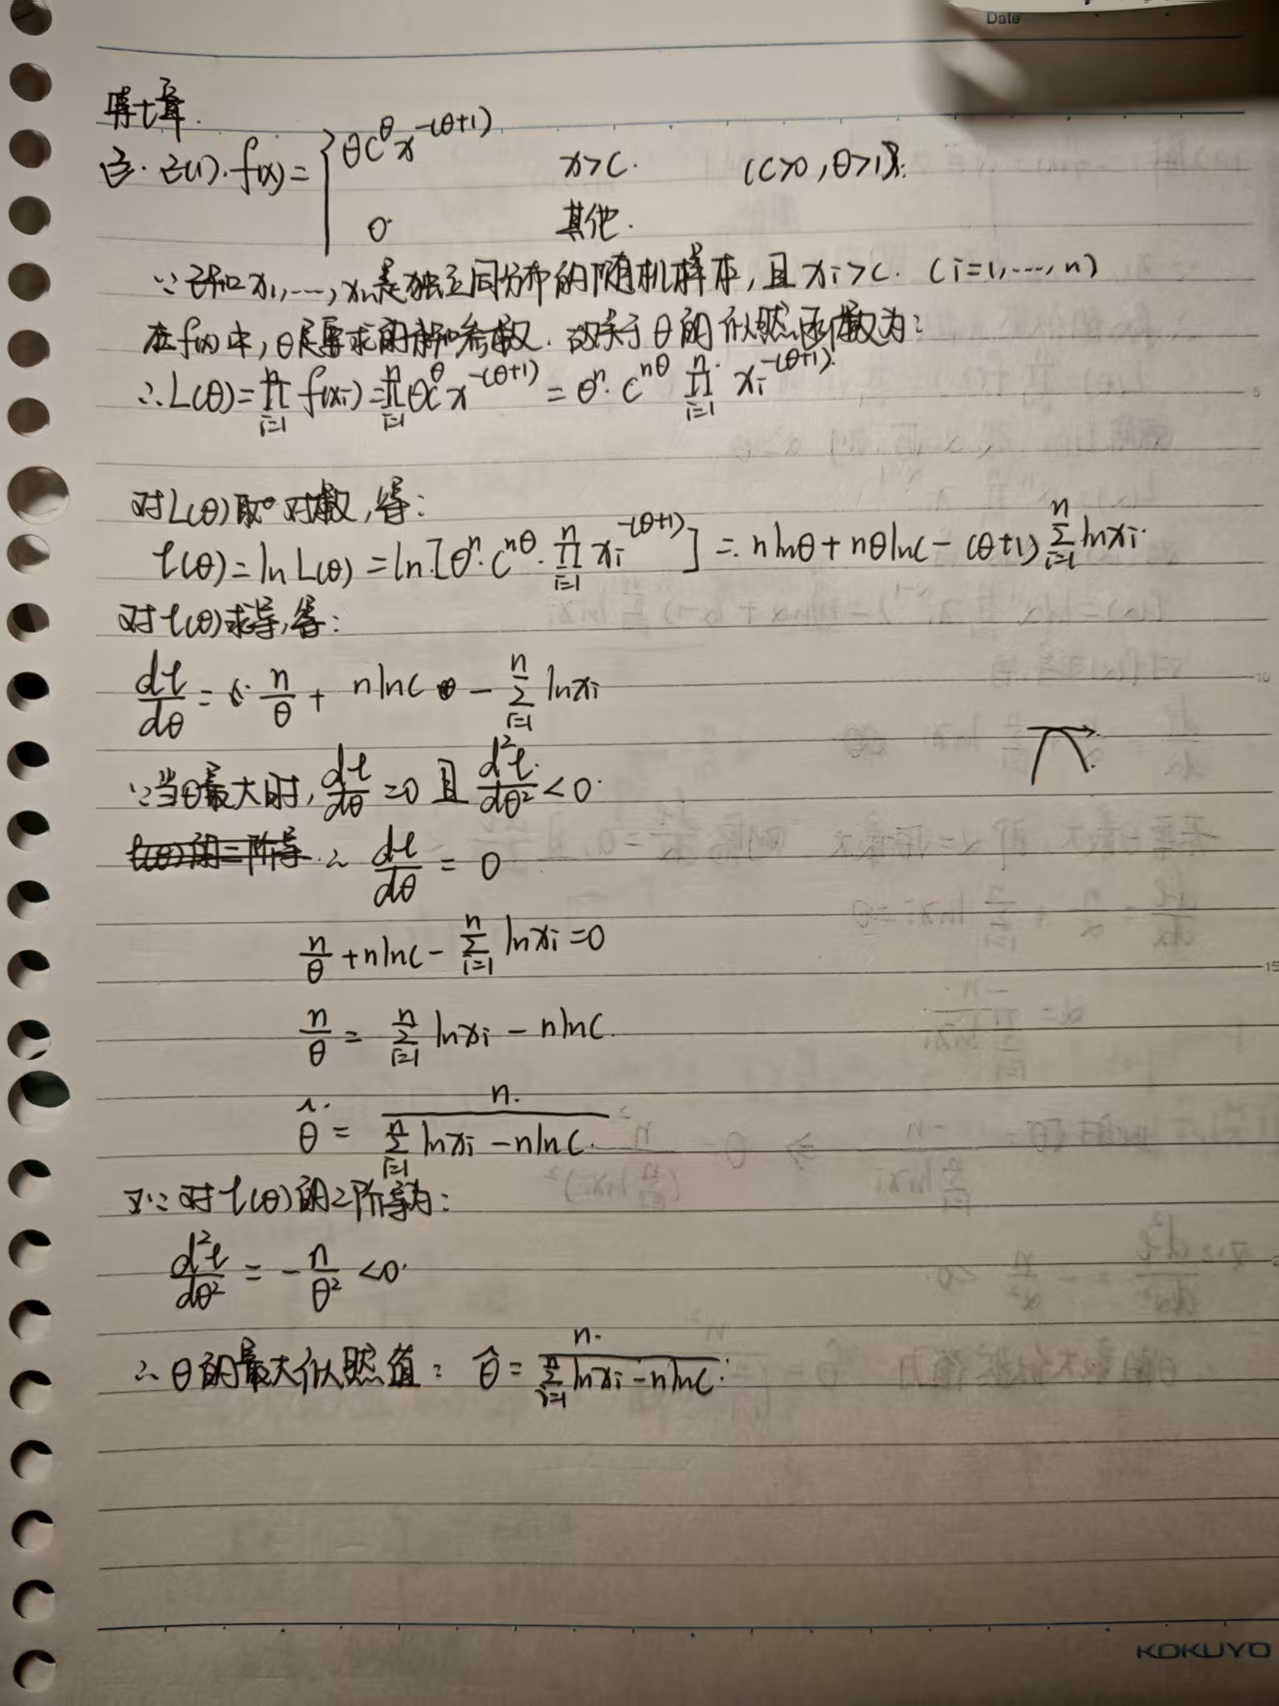 Date
第七章.
三. 2(1). f(x) = { θC^θ x^{-(θ+1)} x>C. (C>0, θ>1).
0. 其他.
∵ 已知 x₁,…,xₙ是独立同分布的随机样本, 且 xi>C. (i=1,…,n)
在f(x)中, θ是要求的未知参数. 故关于θ的似然函数为:
∴ L(θ) = ∏_{i=1}^{n} f(xi) = ∏_{i=1}^{n} θC^θ x^{-(θ+1)} = θ^n · C^{nθ} ∏_{i=1}^{n} xi^{-(θ+1)}.
对L(θ)取对数, 得:
ℓ(θ) = ln L(θ) = ln [θ^n · C^{nθ} · ∏_{i=1}^{n} xi^{-(θ+1)}] = n lnθ + nθ lnC - (θ+1) ∑_{i=1}^{n} ln xi.
对ℓ(θ)求导, 得:
dℓ/dθ = n/θ + n lnC - ∑_{i=1}^{n} ln xi
∵ 当θ最大时, dℓ/dθ = 0 且 d²ℓ/dθ² < 0.
∴ dℓ/dθ = 0
n/θ + n lnC - ∑_{i=1}^{n} ln xi = 0
n/θ = ∑_{i=1}^{n} ln xi - n lnC.
θ̂ = n / (∑_{i=1}^{n} ln xi - n lnC).
又∵ 对ℓ(θ)的2阶导为:
d²ℓ/dθ² = - n/θ² < 0.
∴ θ的最大似然值: θ̂ = n / (∑_{i=1}^{n} ln xi - n lnC).
KOKUYO